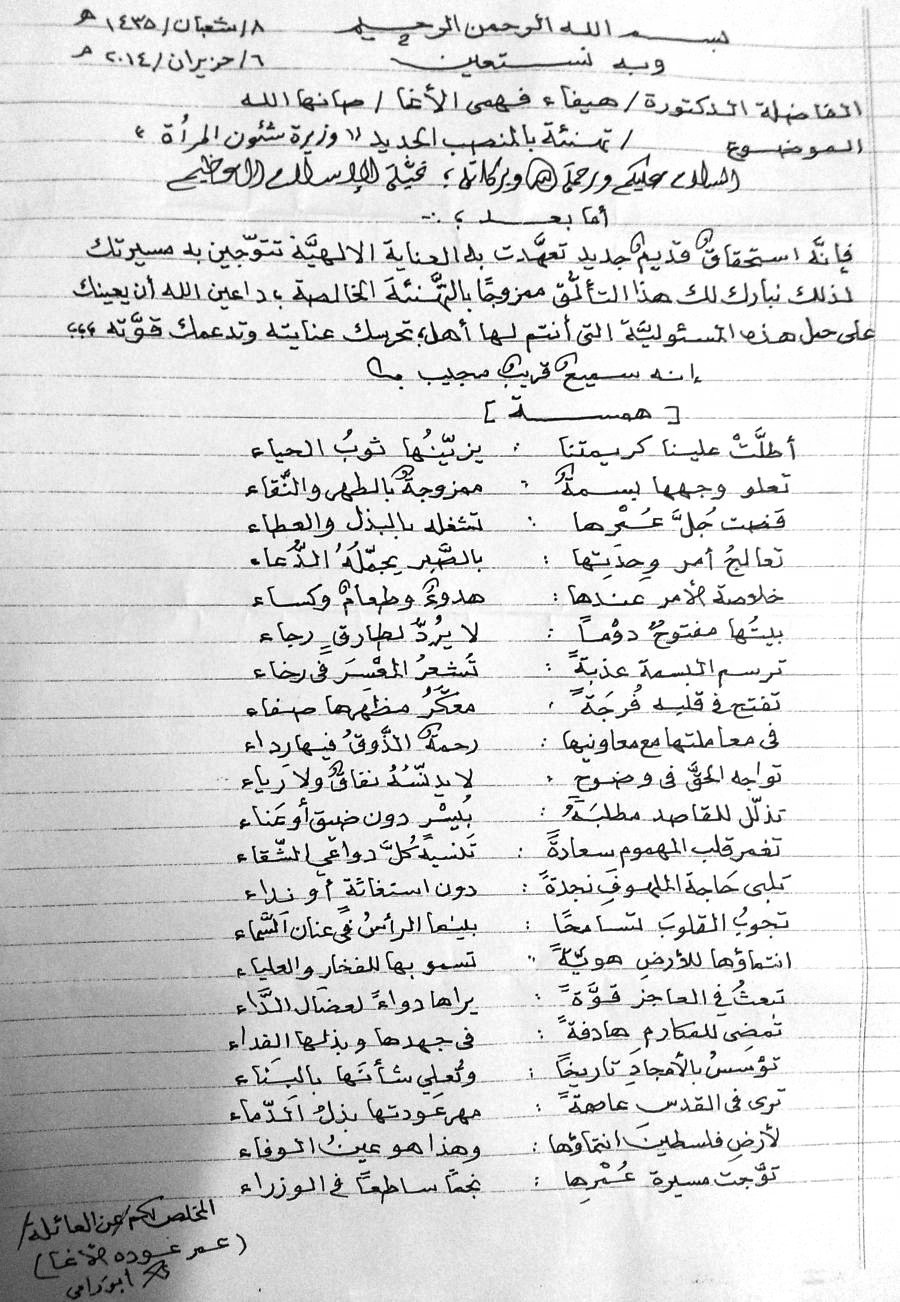 بسم الله الرحمن الرحيم ٨/شعبان/١٤٣٥ هـ
وبه نستعين ٦/حزيران/٢٠١٤ م
الفاضلة الدكتورة/ هيفاء فهمي الأغا/ صانها الله
الموضوع / تهنئة بالمنصب الجديد " وزيرة شئون المرأة "
السلام عليكم ورحمة الله وبركاته ، تحيَّة الإسلام العظيم
أما بعد ؛ ..
فإنَّه استحقاقٌ قديمٌ جديد تعهَّدت به العناية الالهيَّة تتوِّجين به مسيرتك
لذلك نبارك لك هذا التألُّق ممزوجًا بالتَّهنئة الخالصة ، داعين الله أن يعينك
على حمل هذه المسئوليَّة التي أنتم لها أهل ، تحرسك عنايته وتدعمك قوَّته ،،،
إنه سميعٌ قريبٌ مجيب
[ همســة ]
أطلَّتْ علينا كريمتنا : يزيِّنُها ثوبُ الحياء
تعلو وجهها بسمةٌ : ممزوجةٌ بالطهر والنَّقاء
قضت جُلَّ عُمْرها : تشغله بالبذل والعطاء
تعالجُ أمر وحدَتِها : بالصَّبر يجمّلُهُ الدُّعاء
خلاصة الأمر عندها : هدوءٌ وطعامٌ وكساء
بيتُها مفتوحٌ دوْماً : لا يُردُّ لطارقٍ رجاء
ترسم البسمة عذبةً : تُشعرُ المعْسِرَ في رخاء
تفتح في قلبه فُرجَةً : معكَّرُ مظهرها صفاء
في معاملتها مع معاونيها : رحمةُ الذَّوقُ فيها رداء
تواجه الحقَّ في وضوح : لا يدنّسُهُ نفاقٌ ولا رياء
تذلّل للقاصد مطلبَهُ : بيُسْرٍ دون ضيق أو عَناء
تغمر قلب المهموم سعادةً : تُنسيهُ كُلَّ دواعي الشّقاء
تلبي حَاجة الملهوفِ نجدةً : دون استغاثة أو نداء
تجوبُ القلوبَ تسامحًا : بينما الرأسُ في عنان السَّماء
انتماؤها للأرضِ هويَّةً : تسمو بها للفخار والعلياء
تبعثُ في العاجز قوَّةً : يراها دواءً لعضال الدَّاء
تمضي للمكارم هادفةً : في جهدها وبذلها الفداء
تؤسسُ بالأمجادِ تاريخاً : وتُعلي شأنَها بالبِنَاء
ترى في القدس عاصمةً : مهر عودتها بذلُ الدّماء
لأرضِ فلسطينَ انتماؤها : وهذا هو عينُ الوفاء
توَّجت مسيرة عُمْرِها : نجمًا ساطعًا في الوزراء
المخلص لكم/عن العائلة/
(عمر عوده الأغا)
أبو رامي